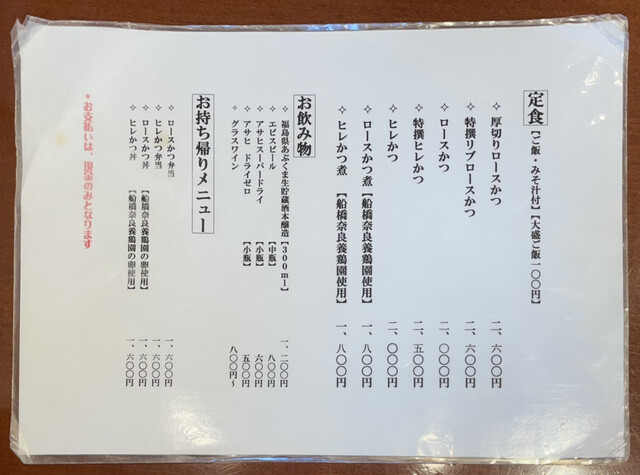 定食【ご飯・みそ汁付】【大盛ご飯一〇〇円】
✧ 厚切りロースかつ 二、六〇〇円
✧ 特撰リブロースかつ 二、六〇〇円
✧ ロースかつ 二、〇〇〇円
✧ 特撰ヒレかつ 二、五〇〇円
✧ ヒレかつ 二、〇〇〇円
✧ ロースかつ煮【船橋奈良養鶏園使用】 一、八〇〇円
✧ ヒレかつ煮【船橋奈良養鶏園使用】 一、八〇〇円
お飲み物
✧ 福島県あぶくま生貯蔵酒本醸造【300ml】 一、二〇〇円
✧ エビスビール【中瓶】 八〇〇円
✧ アサヒスーパードライ【小瓶】 六〇〇円
✧ アサヒ ドライゼロ【小瓶】 五〇〇円
✧ グラスワイン 八〇〇円〜
お持ち帰りメニュー
✧ ロースかつ弁当 一、六〇〇円
✧ ヒレかつ弁当 一、六〇〇円
✧ ロースかつ丼【船橋奈良養鶏園の卵使用】 一、六〇〇円
✧ ヒレかつ丼【船橋奈良養鶏園の卵使用】 一、六〇〇円
*お支払いは、現金のみとなります